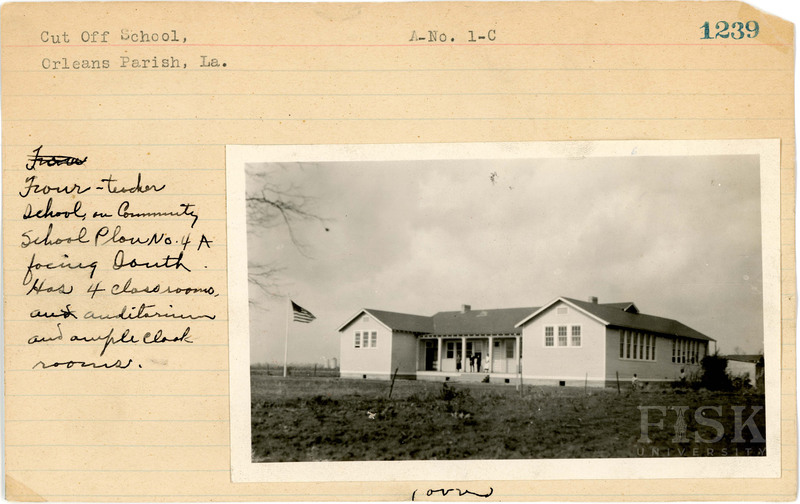 Cut Off School,
A-No. 1-C
1239
Orleans Parish, La.
Four-teacher
School, on Community
School Plan No. 4 A
facing South.
Has 4 classrooms,
auditorium
and ample cloak
rooms.
FISK
UNIVERSITY
(over)